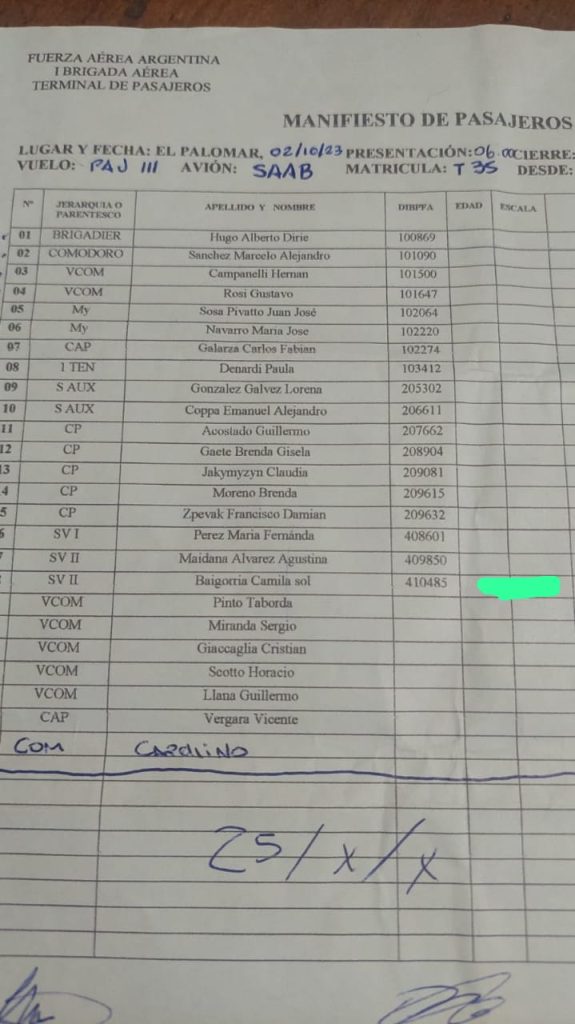 FUERZA AÉREA ARGENTINA
I BRIGADA AÉREA
TERMINAL DE PASAJEROS
MANIFIESTO DE PASAJEROS
LUGAR Y FECHA: EL PALOMAR, 02/10/23 PRESENTACIÓN: 06 00 CIERRE:
VUELO: PAJ III AVIÓN: SAAB MATRICULA: T 35 DESDE:
Nº JERARQUIA O PARENTESCO APELLIDO Y NOMBRE DIBPFA EDAD ESCALA
01 BRIGADIER Hugo Alberto Dirie 100869
02 COMODORO Sanchez Marcelo Alejandro 101090
03 VCOM Campanelli Hernan 101500
04 VCOM Rosi Gustavo 101647
05 My Sosa Pivatto Juan José 102064
06 My Navarro Maria Jose 102220
07 CAP Galarza Carlos Fabian 102274
08 1 TEN Denardi Paula 103412
09 S AUX Gonzalez Galvez Lorena 205302
10 S AUX Coppa Emanuel Alejandro 206611
11 CP Acostado Guillermo 207662
12 CP Gaete Brenda Gisela 208904
13 CP Jakymyzyn Claudia 209081
4 CP Moreno Brenda 209615
5 CP Zpevak Francisco Damian 209632
6 SV I Perez Maria Fernánda 408601
7 SV II Maidana Alvarez Agustina 409850
SV II Baigorria Camila sol 410485
VCOM Pinto Taborda
VCOM Miranda Sergio
VCOM Giaccaglia Cristian
VCOM Scotto Horacio
VCOM Llana Guillermo
CAP Vergara Vicente
COM
25/x/x